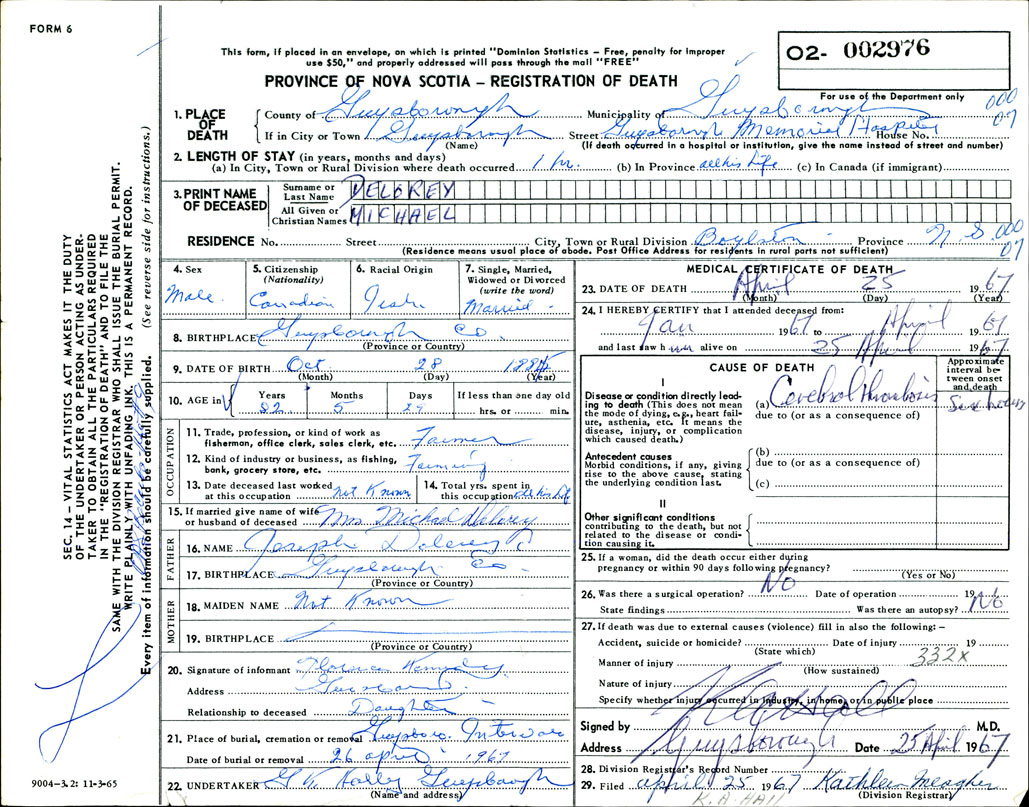 FORM 6
This form, if placed in an envelope, on which is printed "Dominion Statistics – Free, penalty for improper
use $50," and properly addressed will pass through the mail "FREE"
O2- 002976
PROVINCE OF NOVA SCOTIA – REGISTRATION OF DEATH
For use of the Department only
000
07
1. PLACE OF DEATH
County of Guysborough Municipality of Guysborough
If in City or Town Guysborough Street Guysborough Memorial Hospital House No.
(Name) (If death occurred in a hospital or institution, give the name instead of street and number)
2. LENGTH OF STAY (in years, months and days)
(a) In City, Town or Rural Division where death occurred 1 hr. (b) In Province all his life (c) In Canada (if immigrant)
3. PRINT NAME OF DECEASED
Surname or Last Name DELOREY
All Given or Christian Names MICHAEL
RESIDENCE No. Street City, Town or Rural Division Boylston Province N.S. 000
07
(Residence means usual place of abode. Post Office Address for residents in rural parts not sufficient)
4. Sex
Male
5. Citizenship
(Nationality)
Canadian
6. Racial Origin
Irish
7. Single, Married,
Widowed or Divorced
(write the word)
Married
8. BIRTHPLACE Guysborough Co.
(Province or Country)
9. DATE OF BIRTH Oct 28
(Month) (Day) (Year)
10. AGE in
Years Months Days If less than one day old
82 5 29 hrs. or min.
OCCUPATION
11. Trade, profession, or kind of work as
fisherman, office clerk, sales clerk, etc. Farmer
12. Kind of industry or business, as fishing,
bank, grocery store, etc. Farming
13. Date deceased last worked
at this occupation not Known
14. Total yrs. spent in
this occupation all his life
15. If married give name of wife
or husband of deceased Mrs. Michael Delorey
FATHER
16. NAME Joseph Delorey
17. BIRTHPLACE Guysborough Co
(Province or Country)
MOTHER
18. MAIDEN NAME Not Known
19. BIRTHPLACE
(Province or Country)
20. Signature of informant Florence Kennedy
Address
Relationship to deceased Daughter
21. Place of burial, cremation or removal Guysboro. Intervale
Date of burial or removal 26 april 1967
22. UNDERTAKER Guysborough
(Name and address)
MEDICAL CERTIFICATE OF DEATH
23. DATE OF DEATH April 25 1967
(Month) (Day) (Year)
24. I HEREBY CERTIFY that I attended deceased from:
Jan 1967 to April 1967
and last saw him alive on 25 April 1967
CAUSE OF DEATH
Approximate
interval be-
tween onset
and death
I
Disease or condition directly lead-
ing to death (This does not mean
the mode of dying, e.g., heart fail-
ure, asthenia, etc. It means the
disease, injury, or complication
which caused death.)
(a) Cerebral thrombosis
due to (or as a consequence of)
Antecedent causes
Morbid conditions, if any, giving
rise to the above cause, stating
the underlying condition last.
(b)
due to (or as a consequence of)
(c)
II
Other significant conditions
contributing to the death, but not
related to the disease or condi-
tion causing it.
25. If a woman, did the death occur either during
pregnancy or within 90 days following pregnancy?
(Yes or No)
26. Was there a surgical operation? No Date of operation 19
State findings Was there an autopsy? No
27. If death was due to external causes (violence) fill in also the following: –
Accident, suicide or homicide? Date of injury 19
(State which)
332X
Manner of injury
(How sustained)
Nature of injury
Specify whether injury occurred in industry, in home, or in public place
Signed by M.D.
Address Guysborough Date 25 April 1967
28. Division Registrar's Record Number
29. Filed april 25 1967 Kathleen Meagher
(Division Registrar)
K.A. HALL
SEC. 14 – VITAL STATISTICS ACT MAKES IT THE DUTY
OF THE UNDERTAKER OR PERSON ACTING AS UNDER-
TAKER TO OBTAIN ALL THE PARTICULARS REQUIRED
IN THE "REGISTRATION OF DEATH" AND TO FILE THE
SAME WITH THE DIVISION REGISTRAR WHO SHALL ISSUE THE BURIAL PERMIT.
WRITE PLAINLY WITH UNFADING INK. THIS IS A PERMANENT RECORD.
Every item of information should be carefully supplied. (See reverse side for instructions.)
9004–3.2: 11-3-65